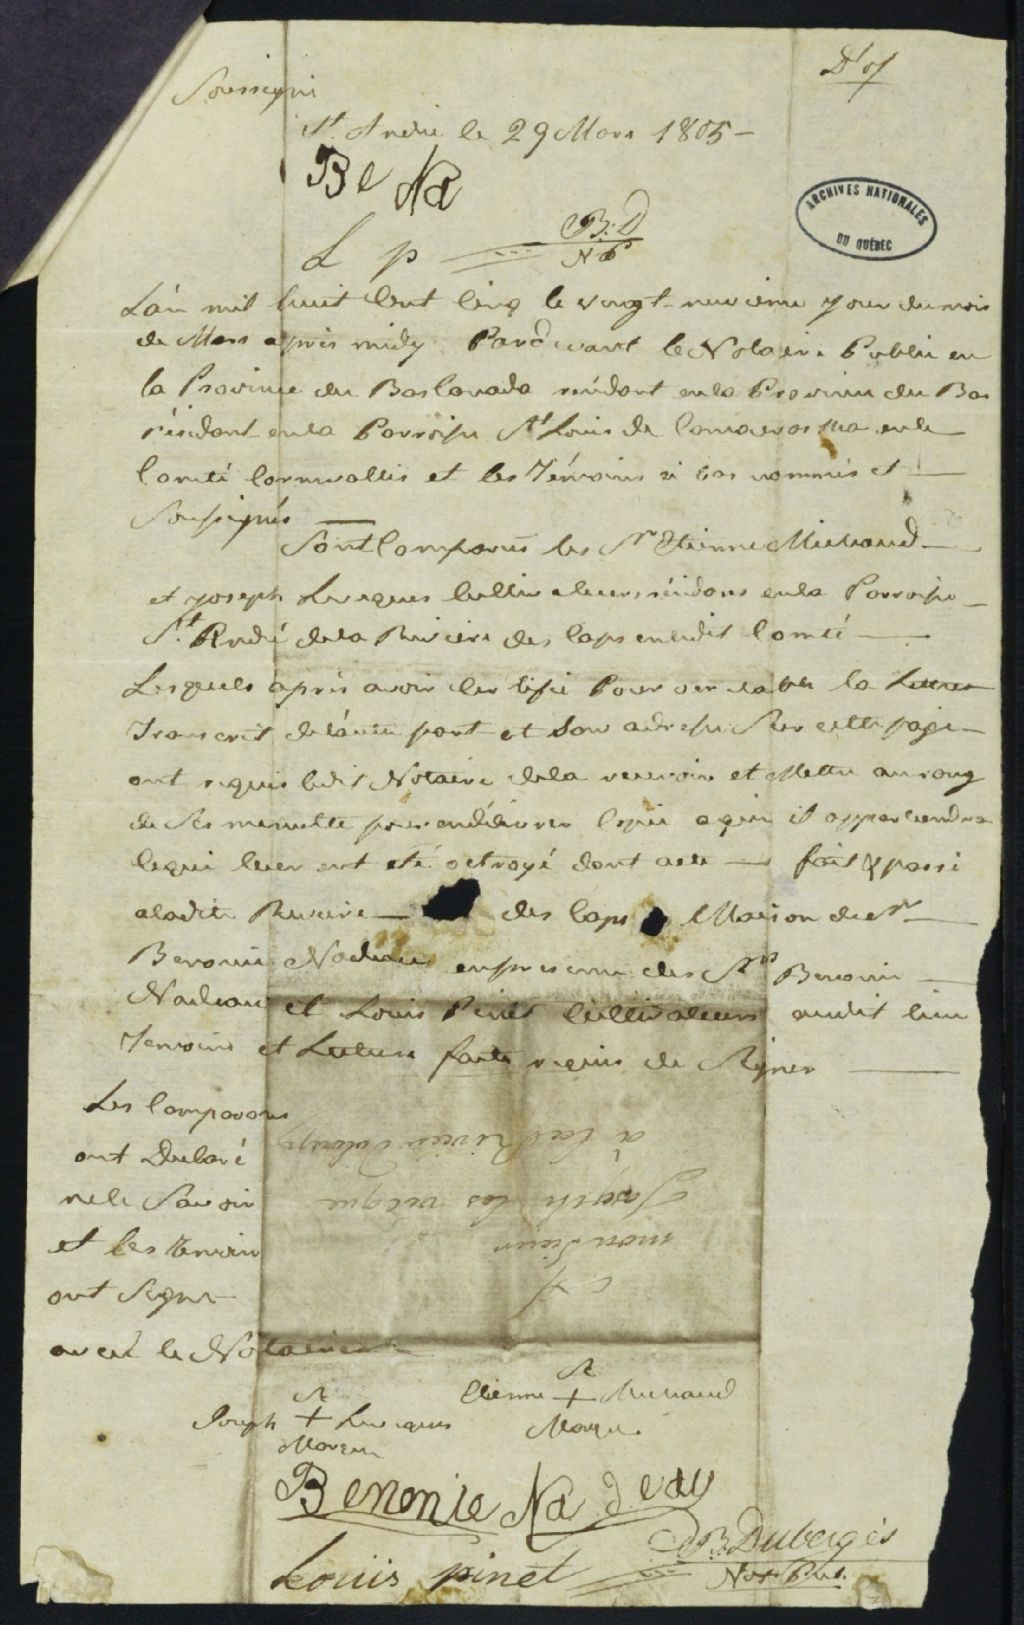 Soussigné
Dt of
St. Andre le 29 Mars 1805 –
Be Na
B:D
L p
N P
ARCHIVES NATIONALES
DU QUÉBEC
L'an mil huit Cent Cinq le vingt-neuvieme jour du mois
de Mars apres midy Pardevant le Notaire Public en
la Province du Bas Canada résidant en la Province du Bas
résidant en la Parroisse St Louis de Camaouraska en le
Comté Cornwallis et les Témoins ci bas nommés et
Soussignés
Sont Comparus les Sr Etienne Michaud
et Joseph Leveques Cultivateurs résidans en la Parroisse
St. André de la Riviere des Caps en ledit Comté
Lesquels après avoir Certifié Pour veritable la Lettres
Transcrit de l'autre part et Son adresse Sur cette page
ont requis ledit Notaire de la recevoir et Mettre au rang
de Ses minutte pour en délivrer Copie a qui il appartiendra
lequi leur ont été octroyé dont acte — fait & passé
a ladite Riviere — des Caps Maison du Sr
Benonie Nadeau en presence des Srs Benonie
Nadeau et Louis Pinet Cultivateurs audit lieu
Temoins et Lecture faite requis de Signer
Les Comparans
ont Declaré
ne le Savoir
et les temoin
ont Signé
avec le Notaire
à la Riviere
Joseph Les veique
mon Sieur
A
Sa
Etienne + Michaud
Marque
Sa
Joseph + Leveques
Marque
Benonie Nadeau
B. Dubergès
Louis pinet
Not. Pub.